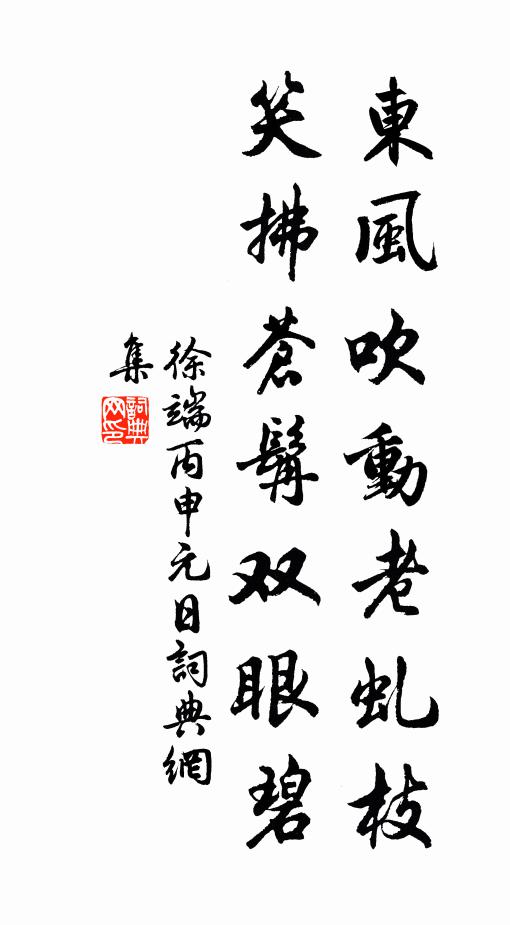 東風吹動老虬枝
笑拂蒼髯双眼碧
徐端丙申元日詞典網
集
詞典
网印